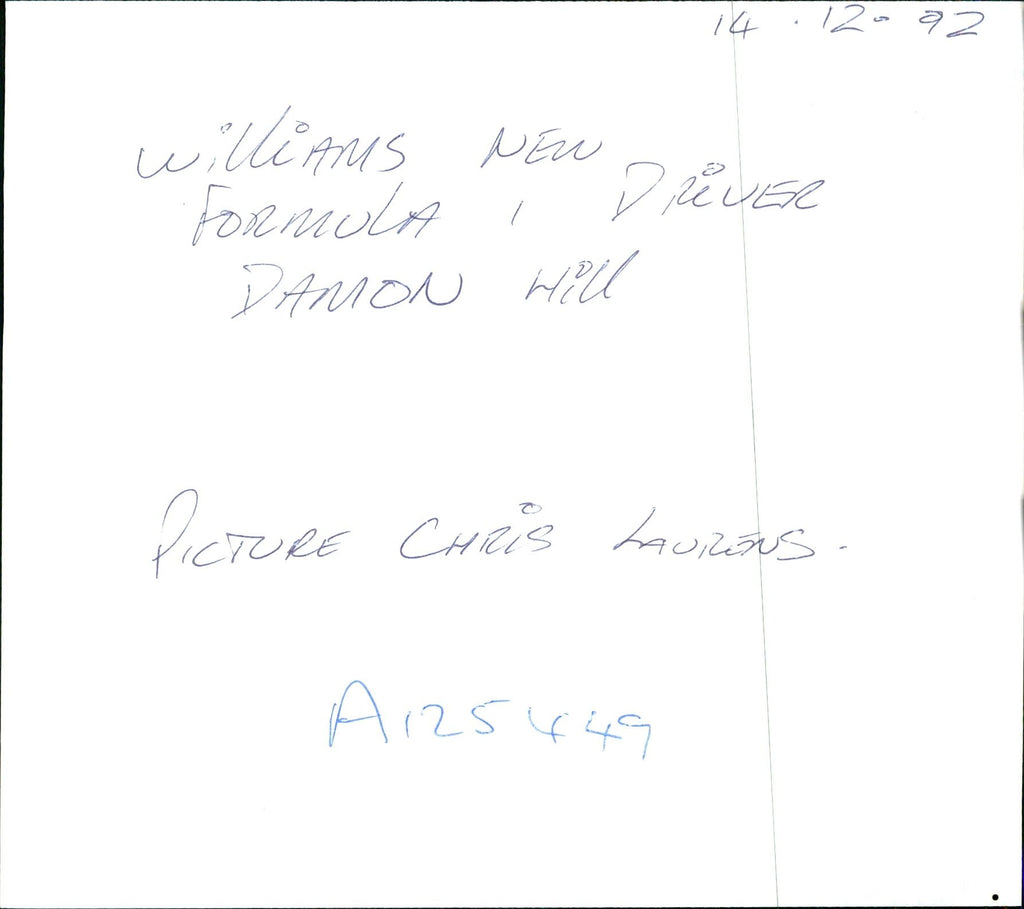 14.12.92
WilliAMS NEW
FORMULA 1 DRiVER
DAMON Hill
PICTURE CHRiS LAURENS.
A125449